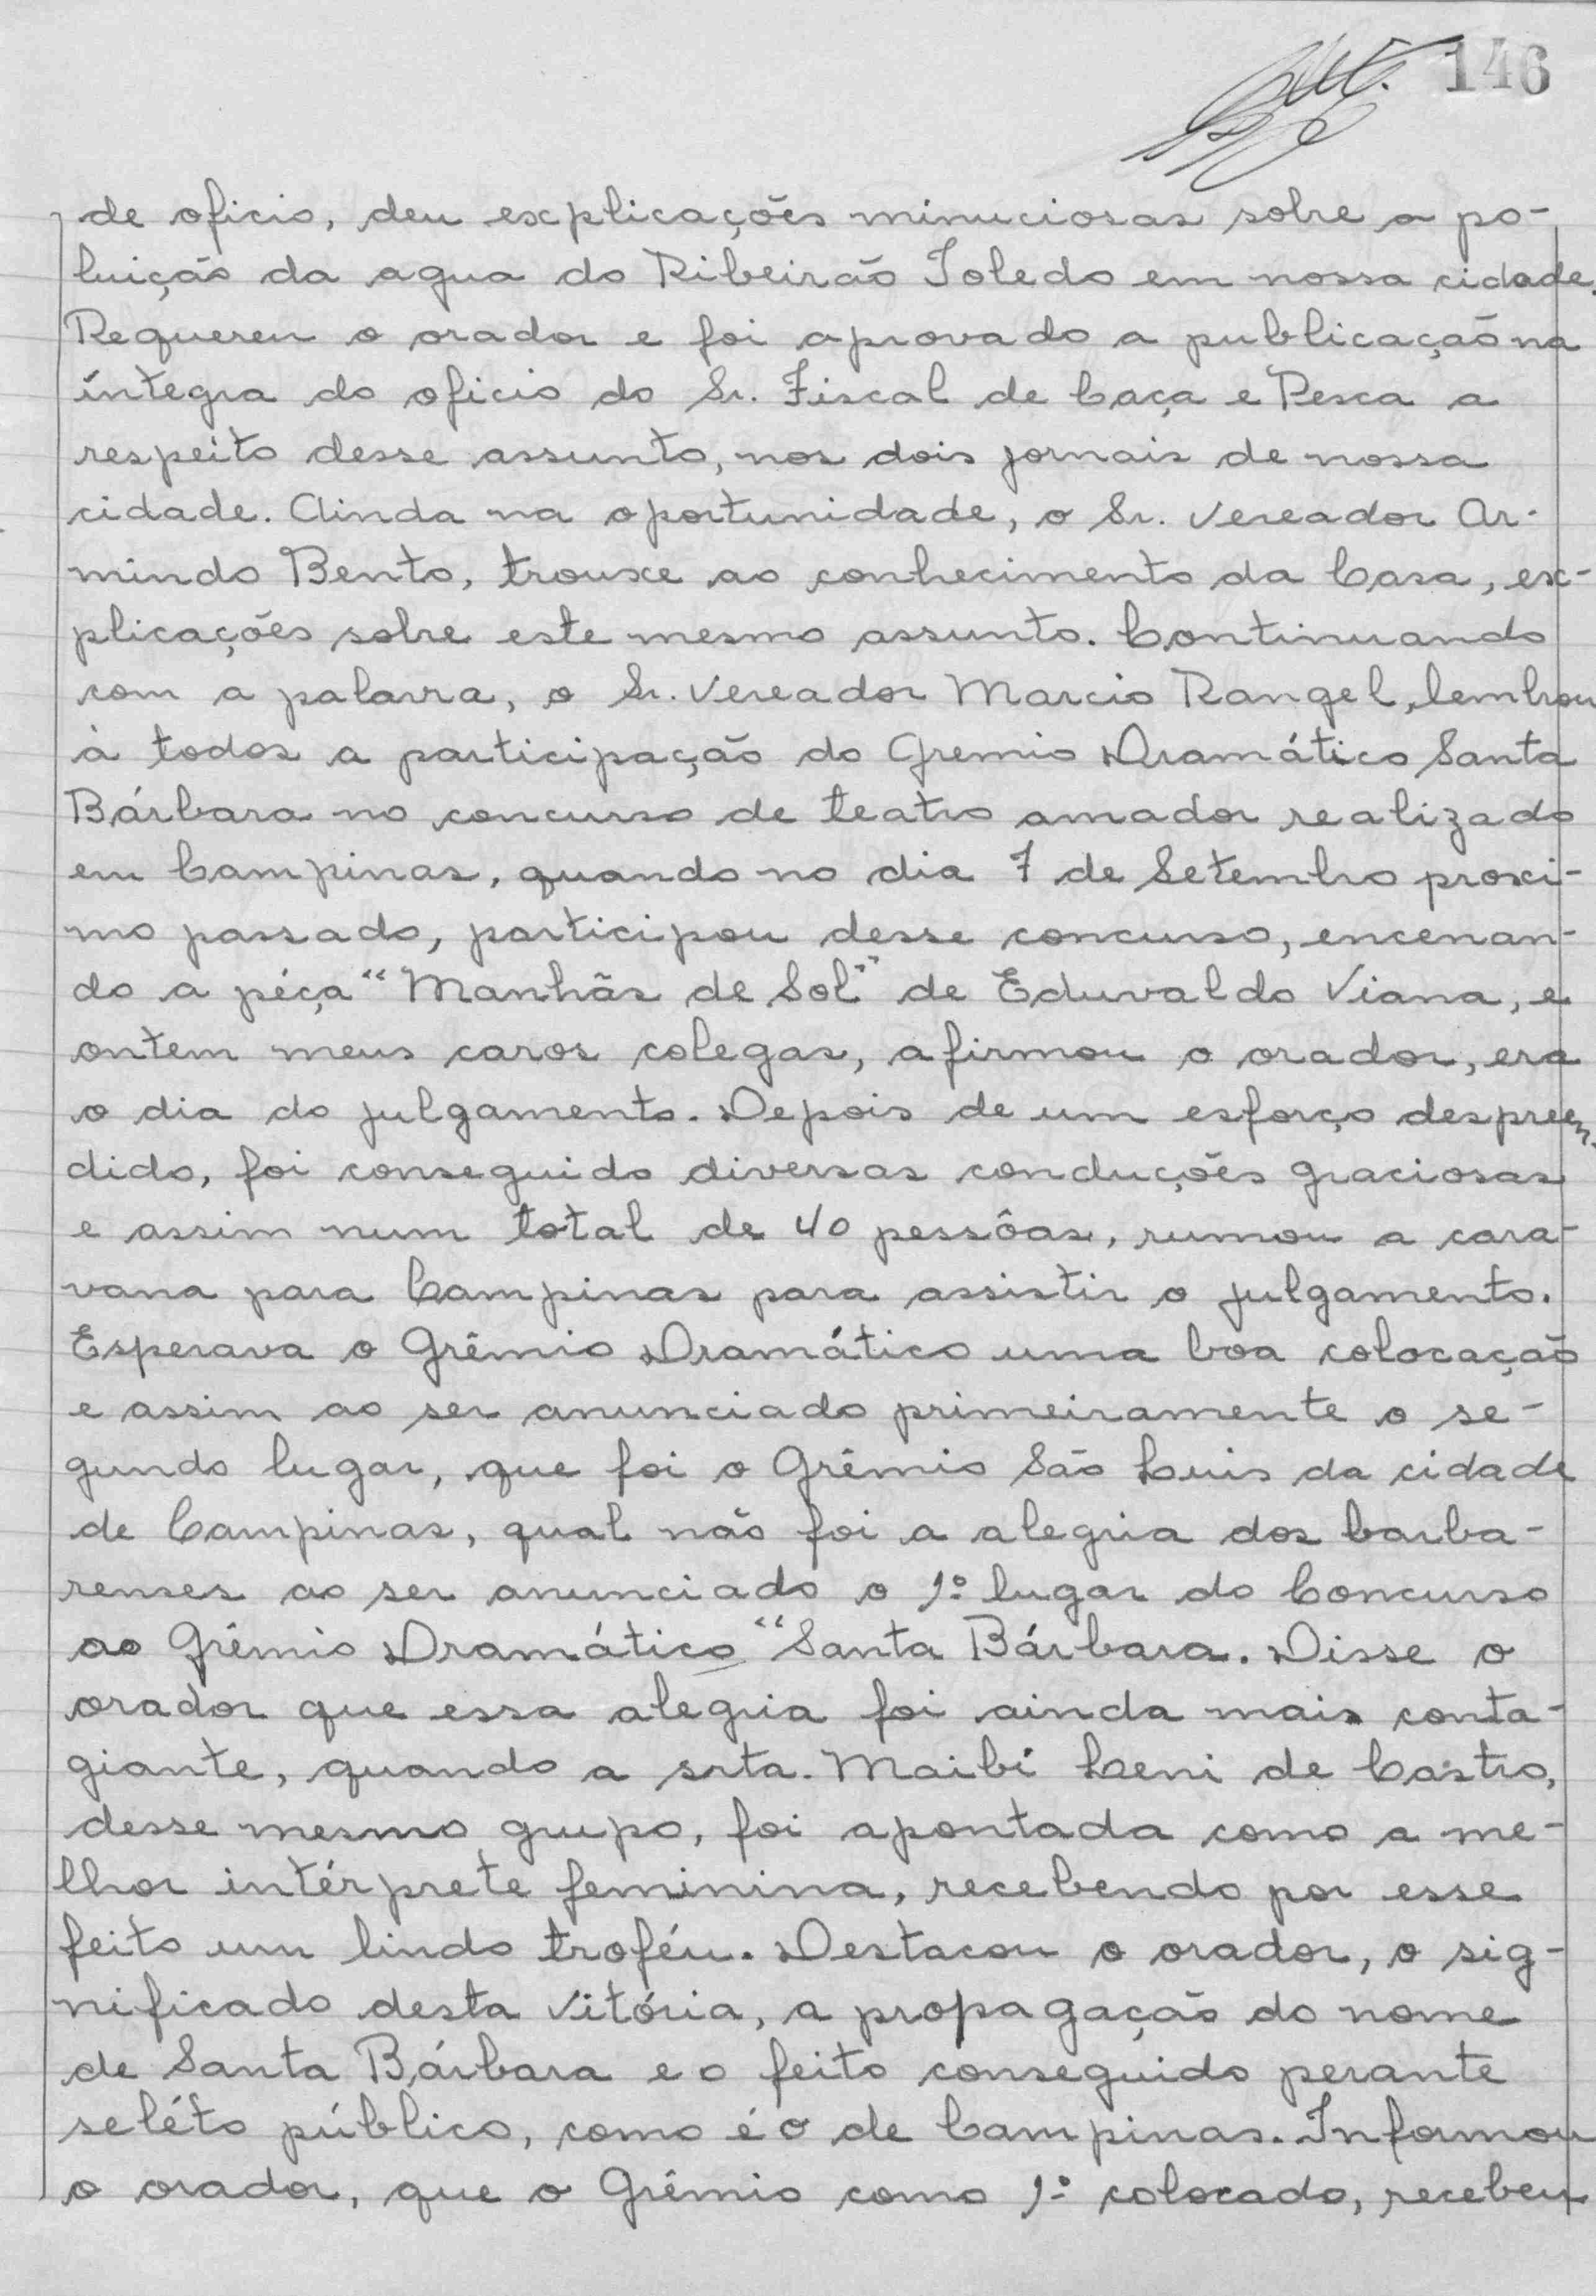 146
de oficio, deu explicações minuciosas sobre a po-
luição da agua do Ribeirão Toledo em nossa cidade.
Requereu o orador e foi aprovado a publicação na
íntegra do oficio do Sr. Fiscal de Caça e Pesca a
respeito desse assunto, nos dois jornais de nossa
cidade. Ainda na oportunidade, o Sr. Vereador Ar-
mindo Bento, trouxe ao conhecimento da Casa, ex-
plicações sobre este mesmo assunto. Continuando
com a palavra, o Sr. Vereador Marcio Rangel, lembrou
à todos a participação do Gremio Dramático Santa
Bárbara no concurso de teatro amador realizado
em Campinas, quando no dia 7 de Setembro proxi-
mo passado, participou desse concurso, encenan-
do a péça "Manhãs de Sol" de Eduvaldo Viana, e
ontem meus caros colegas, afirmou o orador, era
o dia do julgamento. Depois de um esforço despreen-
dido, foi conseguido diversas conduções graciosas
e assim num total de 40 pessôas, rumou a cara-
vana para Campinas para assistir o julgamento.
Esperava o Grêmio Dramático uma boa colocação
e assim ao ser anunciado primeiramente o se-
gundo lugar, que foi o Grêmio São Luis da cidade
de Campinas, qual não foi a alegria dos barba-
renses ao ser anunciado o 1º lugar do Concurso
ao Grêmio Dramático "Santa Bárbara. Disse o
orador que essa alegria foi ainda mais conta-
giante, quando a srta. Maibi Leni de Castro,
desse mesmo grupo, foi apontada como a me-
lhor intérprete feminina, recebendo por esse
feito um lindo troféu. Destacou o orador, o sig-
nificado desta vitória, a propagação do nome
de Santa Bárbara e o feito conseguido perante
seléto público, como é o de Campinas. Informou
o orador, que o Grêmio como 1º colocado, recebeu